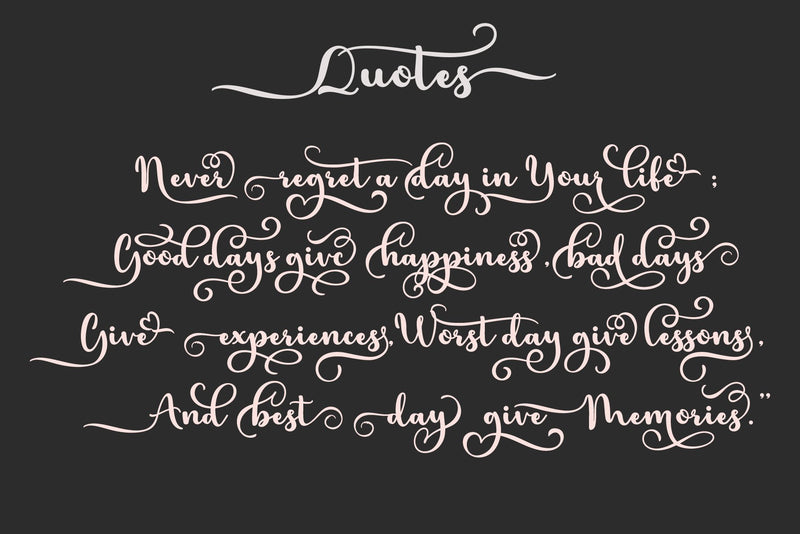 Quotes
Never regret a day in Your life ;
Good days give happiness, bad days
Give experiences, Worst day give lessons,
And best day give Memories.”